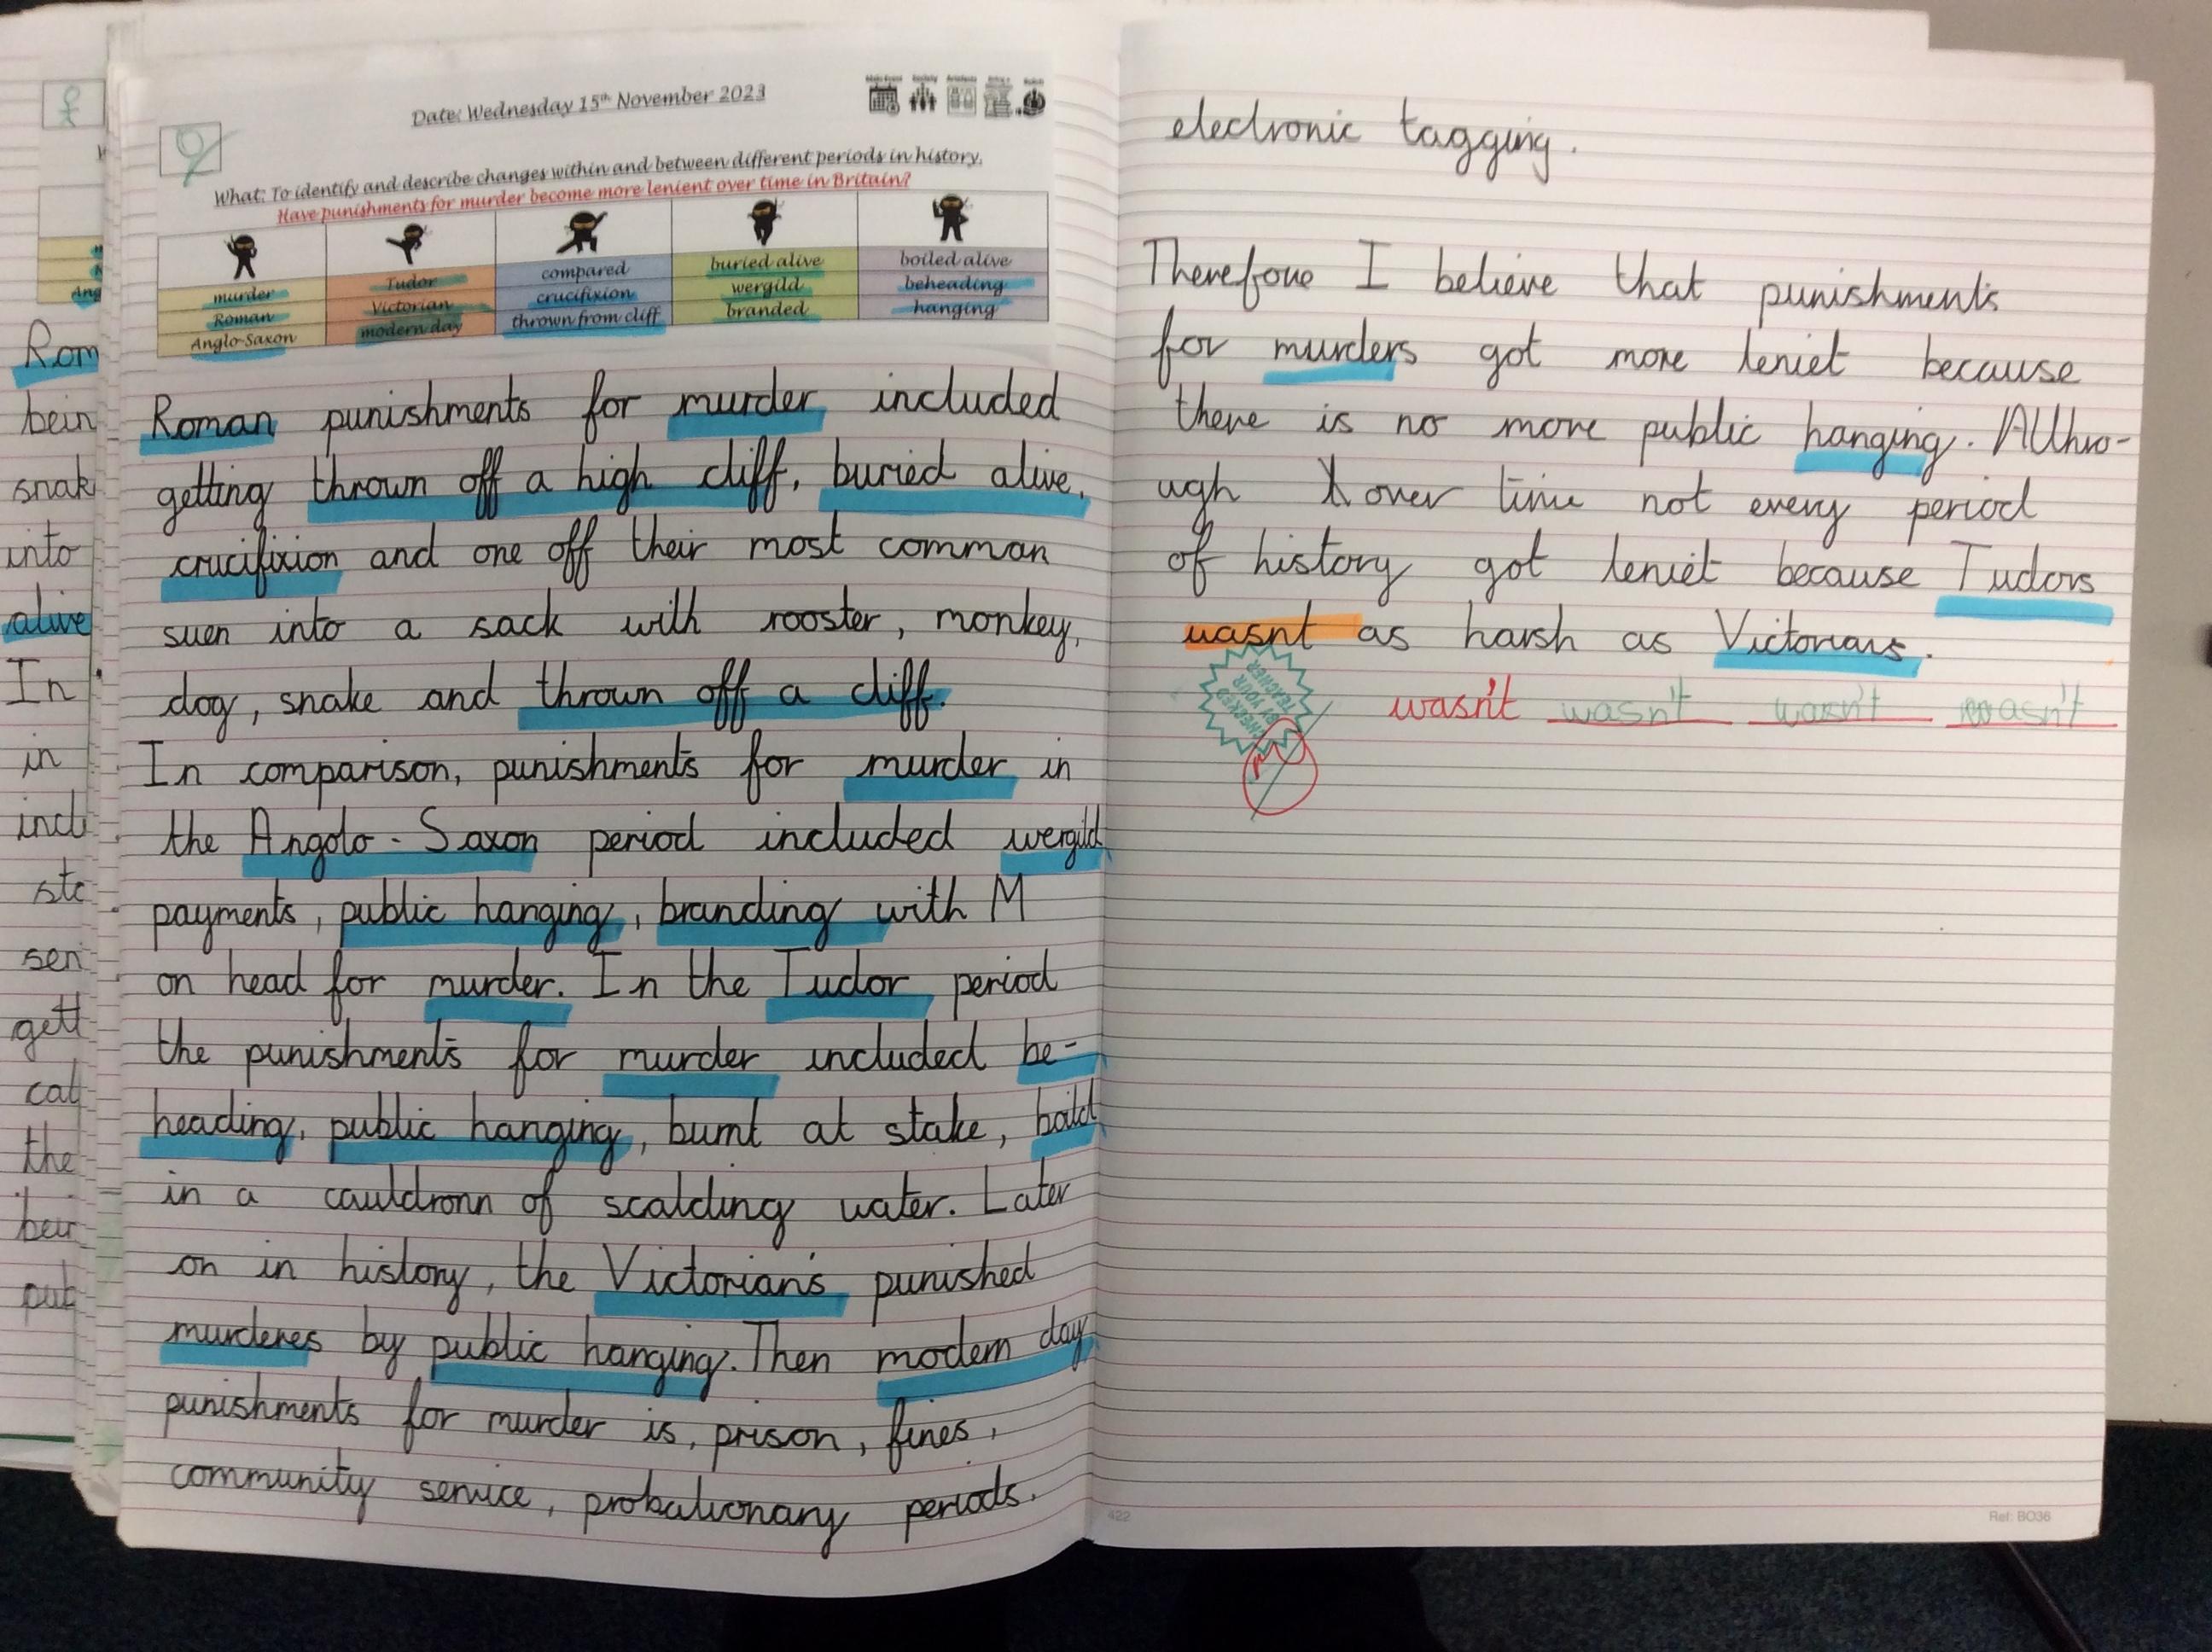 Date: Wednesday 15th November 2023
What: To identify and describe changes within and between different periods in history.
Have punishments for murder become more lenient over time in Britain?
murder
Roman
Anglo-Saxon
Tudor
Victorian
modern day
compared
crucifixion
thrown from cliff
buried alive
wergild
branded
boiled alive
beheading
hanging
Roman punishments for murder included
getting thrown off a high cliff, buried alive,
crucifixion and one off their most comman
suen into a sack with rooster, monkey,
dog, snake and thrown off a cliff.
In comparison, punishments for murder in
the Angolo-Saxon period included wergild
payments, public hanging, branding with M
on head for murder. In the Tudor period
the punishments for murder included be-
heading, public hanging, burnt at stake, boild
in a cauldronn of scalding water. Later
on in history, the Victorian's punished
murderes by public hanging. Then modern day
punishments for murder is, prison, fines,
community service, probationary periods.
electronic tagging.
Therefore I believe that punishments
for murders got more leniet because
there is no more public hanging. Althro-
ugh over time not every period
of history got leniet because Tudors
wasnt as harsh as Victorians.
CHECKED BY YOUR TEACHER
wasn't wasn't wasn't wasn't
422
Ref: BO36
Rom
bein
snak
into
alive
In
in
incl
sto
sen
gett
cat
the
bein
pub